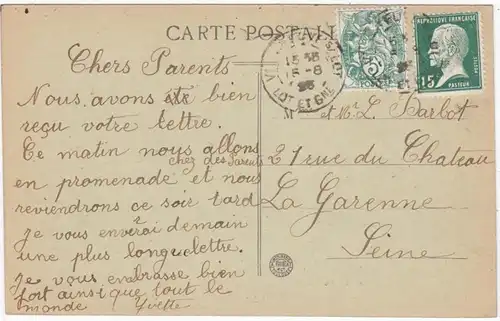 CARTE POSTALE
Chers Parents
Nous avons bien
reçu votre lettre.
Ce matin nous allons
chez des Parents
en promenade et nous
reviendrons ce soir tard
Je vous enverai demain
une plus longue lettre.
Je vous embrasse bien
fort ainsi que tout le
monde Yvette
15 35
15-8
25
LOT ET GNE
5
REPUBLIQUE FRANÇAISE
15
PASTEUR
M et Me L. Barbot
21 rue du Chateau
La Garenne
Seine